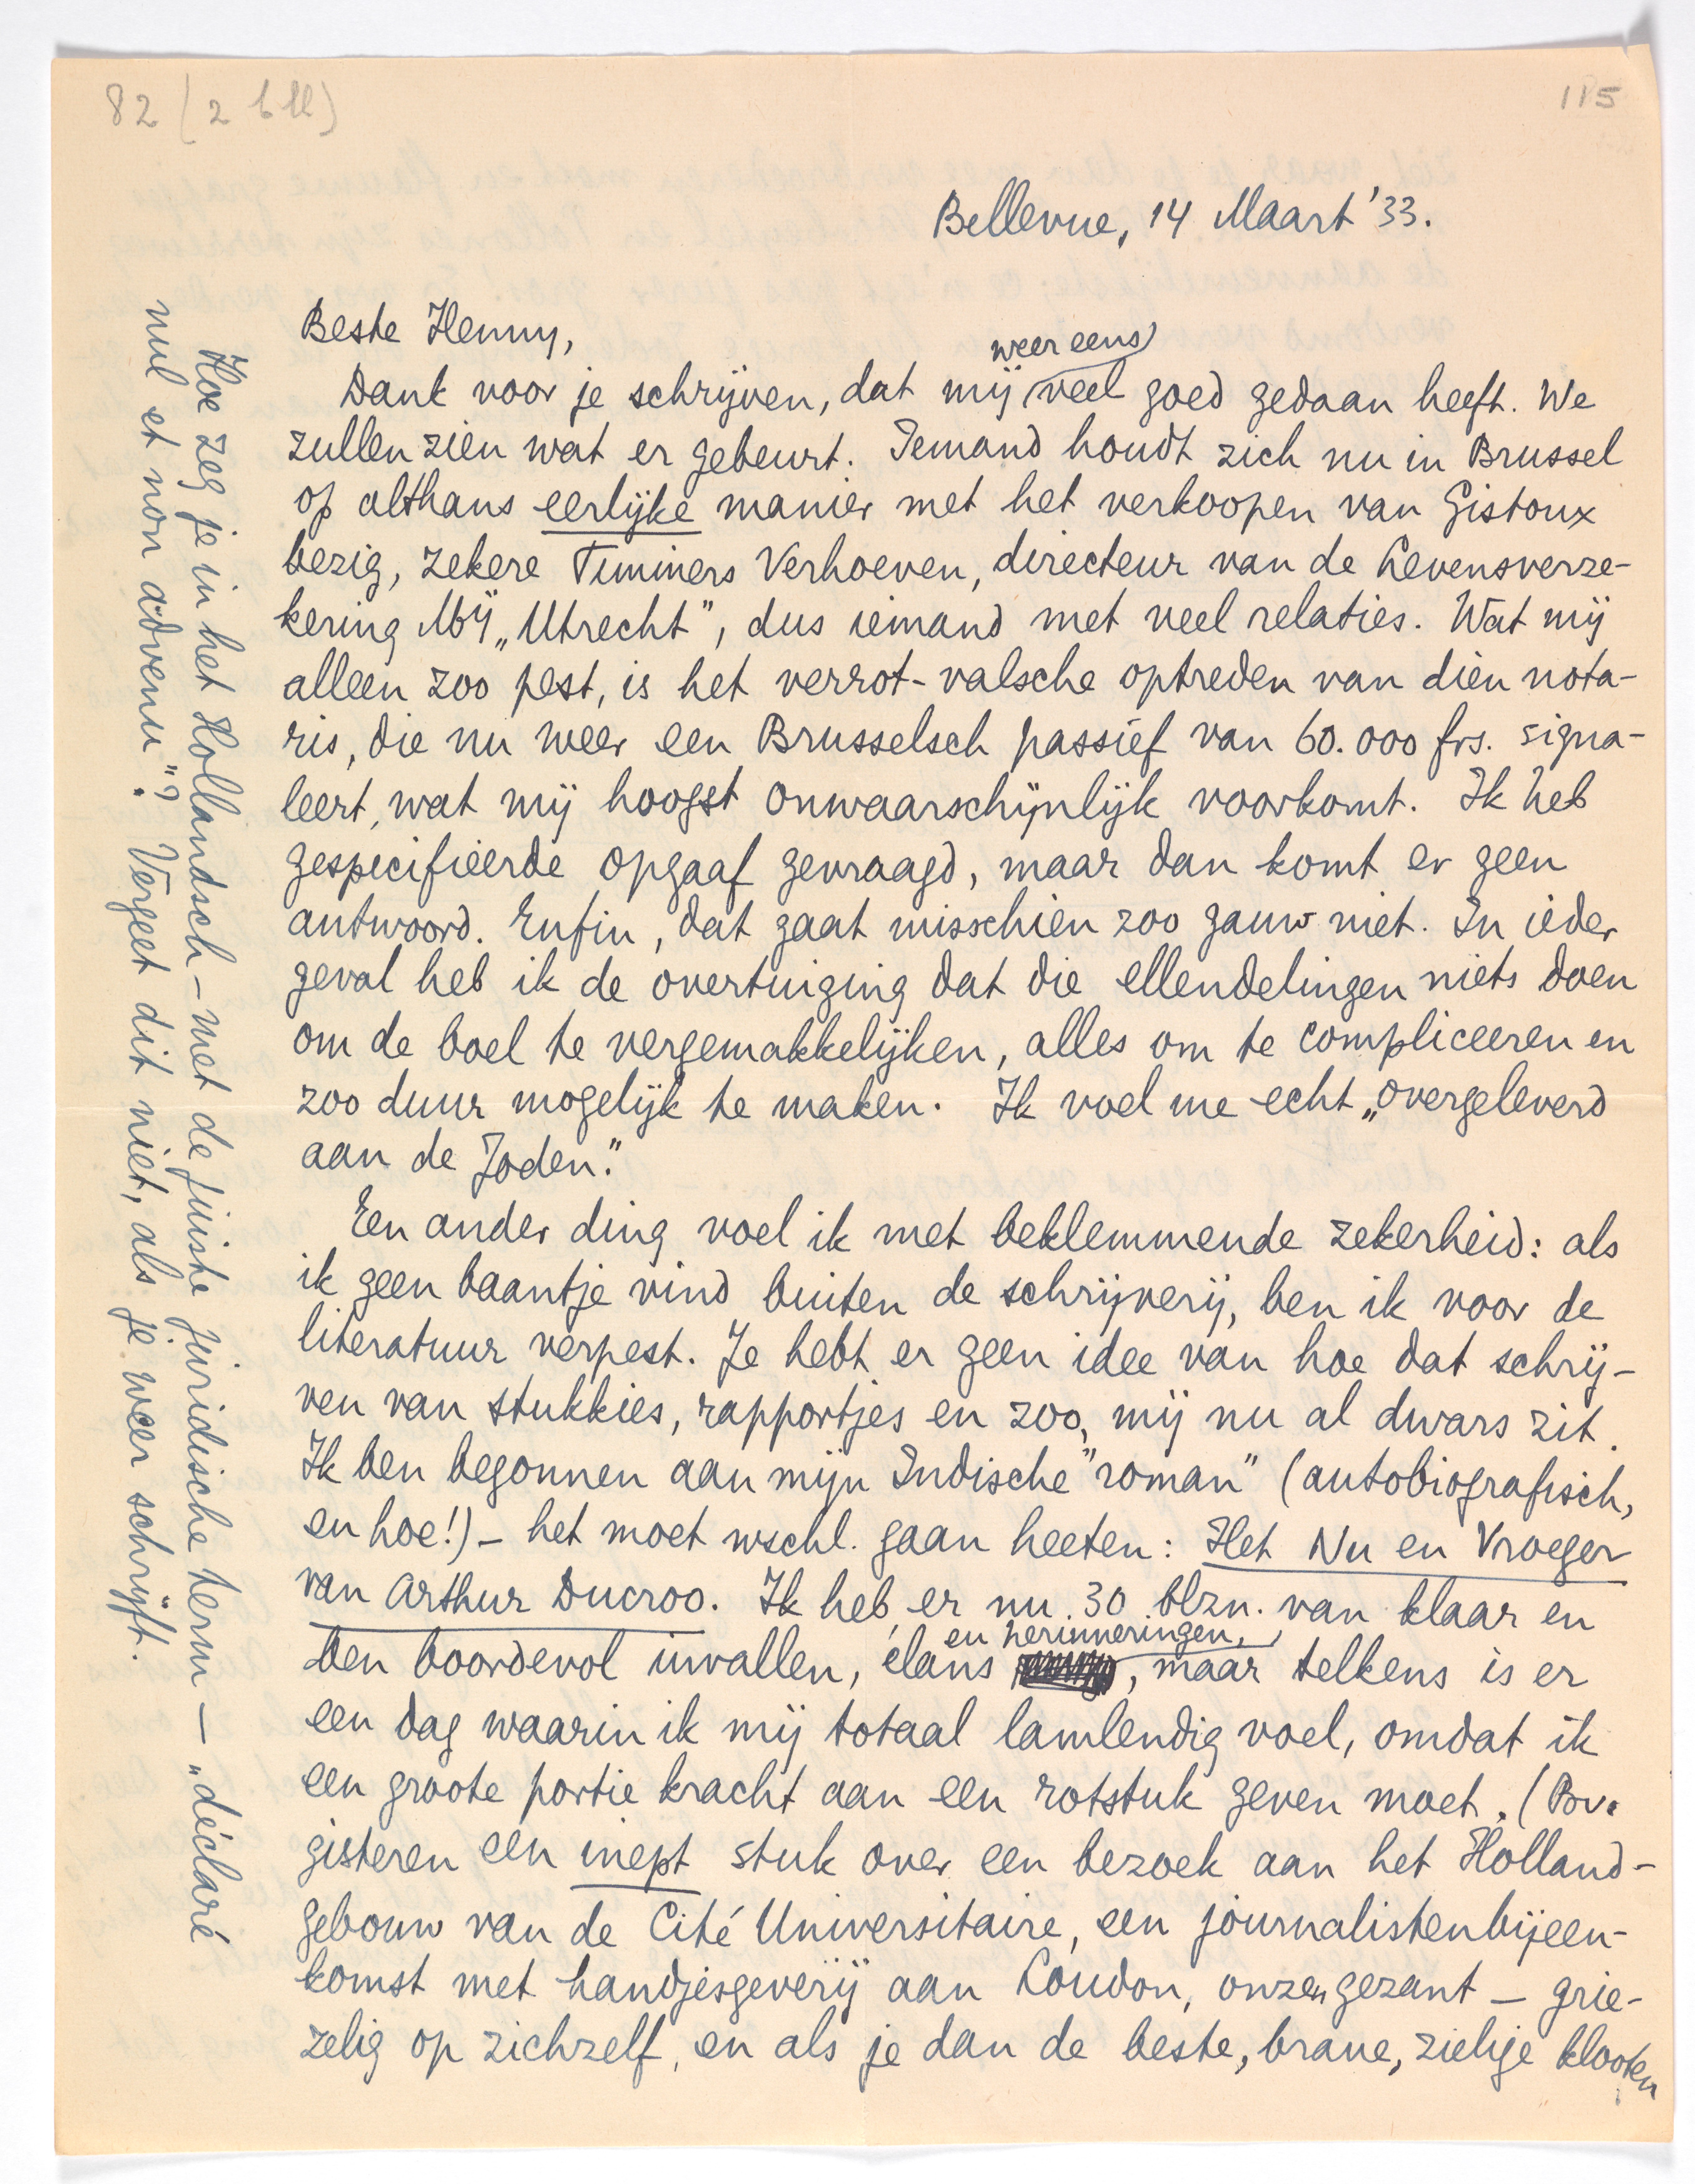 82 (2 bll)
115
Bellevue, 14 Maart '33.
Beste Henny,
weer eens
Dank voor je schrijven, dat mij veel goed gedaan heeft. We
zullen zien wat er gebeurt. Iemand houdt zich nu in Brussel
op althans eerlijke manier met het verkoopen van Gistoux
bezig, zekere Timmers Verhoeven, directeur van de Levensverze-
kering Mij „Utrecht", dus iemand met veel relaties. Wat mij
alleen zoo pest, is het verrot-valsche optreden van dien nota-
ris, die nu weer een Brusselsch passief van 60.000 frs. signa-
leert, wat mij hoogst onwaarschijnlijk voorkomt. Ik heb
gespecifieerde opgaaf gevraagd, maar dan komt er geen
antwoord. Enfin, dat gaat misschien zoo gauw niet. In ieder
geval heb ik de overtuiging dat die ellendelingen niets doen
om de boel te vergemakkelijken, alles om te compliceeren en
zoo duur mogelijk te maken. Ik voel me echt „overgeleverd
aan de Joden."
Een ander ding voel ik met beklemmende zekerheid: als
ik geen baantje vind buiten de schrijverij, ben ik voor de
literatuur verpest. Je hebt er geen idee van hoe dat schrij-
ven van stukkies, rapportjes en zoo, mij nu al dwars zit.
Ik ben begonnen aan mijn Indische "roman" (autobiografisch,
en hoe!) - het moet wschl. gaan heeten: Het Nu en Vroeger
van Arthur Ducroo. Ik heb er nu 30 blzn. van klaar en
en herinneringen,
ben boordevol invallen, élans , maar telkens is er
een dag waarin ik mij totaal lamlendig voel, omdat ik
een groote portie kracht aan een rotstuk geven moet. (Bv.
gisteren een inept stuk over een bezoek aan het Holland-
gebouw van de Cité Universitaire, een journalistenbijeen-
komst met handjesgeverij aan Loudon, onzen gezant - grie-
zelig op zichzelf, en als je dan de beste, brave, zielige klooten
Hoe zeg je in het Hollandsch - met de juiste juridische term - „déclaré
nul et non advenu"? Vergeet dit niet, als je weer schrijft.